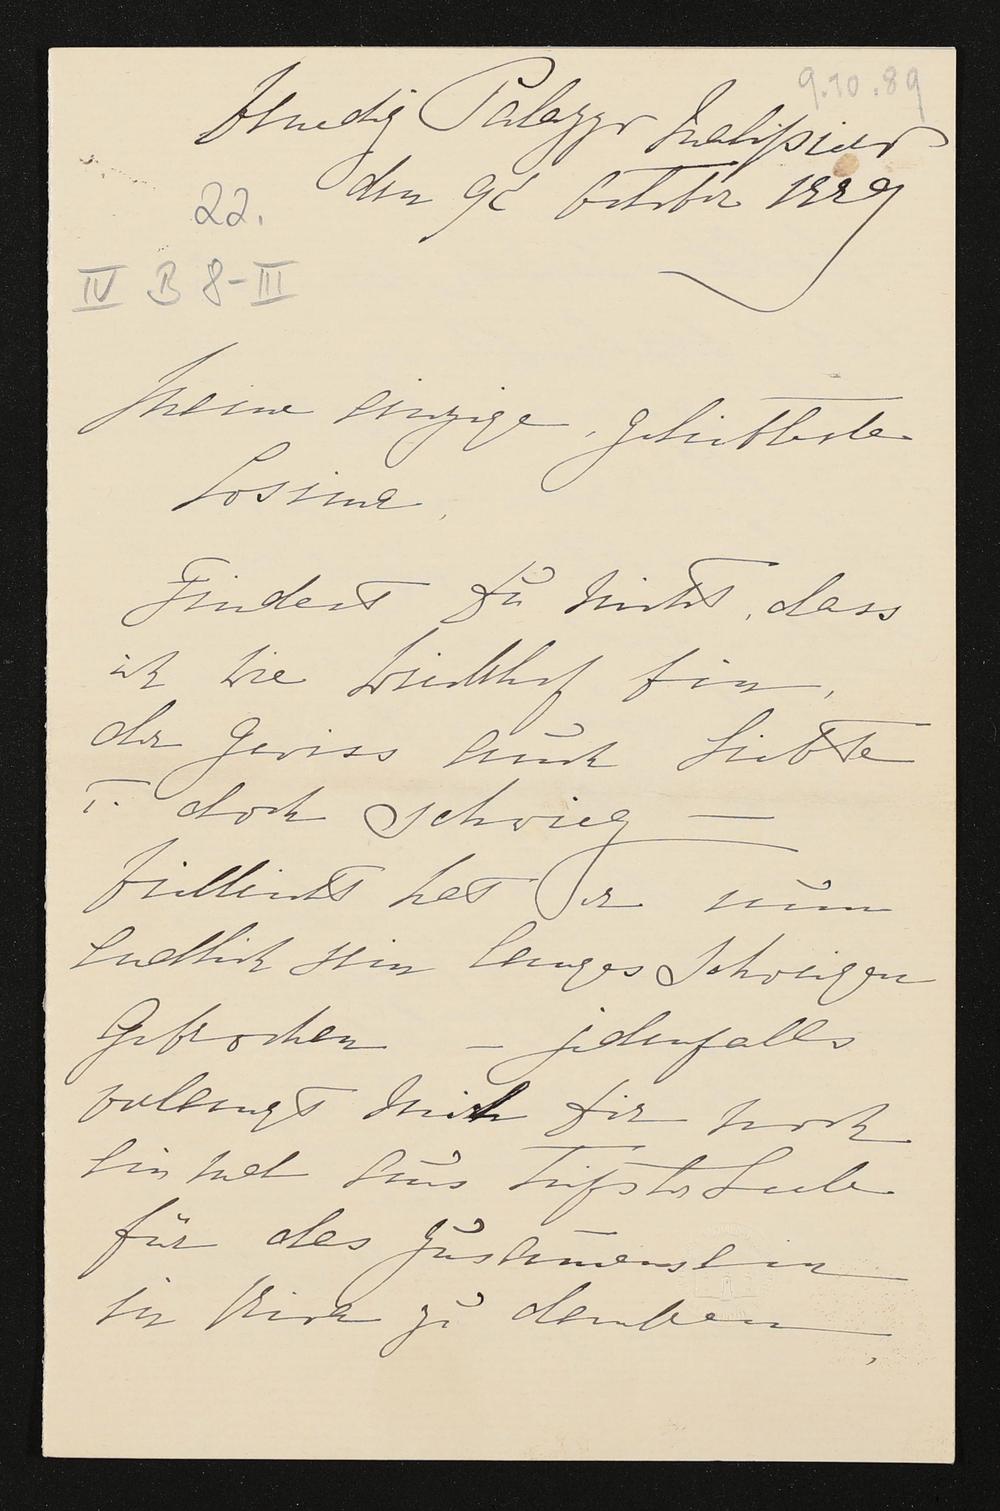 9.10.89
Venedig Palazzo Malipiero
den 9t October 1889
22.
IV B 8-III
Meine einzige, geliebteste
Cosima,
Findest Du nicht, dass
ich wie bin,
der gewiss auch liebte
u. doch schwieg —
Vielleicht hat Er nun
endlich sein langes Schweigen
gebrochen — jedenfalls
verlangt mich Dir noch
einmal aus tiefster Seele
für das Zusammensein
in zu danken,